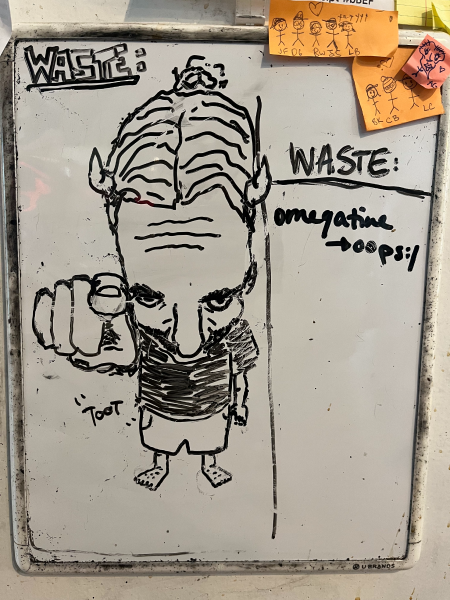 WASTE:
WASTE:
omegatine
→oops:/
"TOOT"
JF DG RW JC LB
BK CB LC
U BRANDS